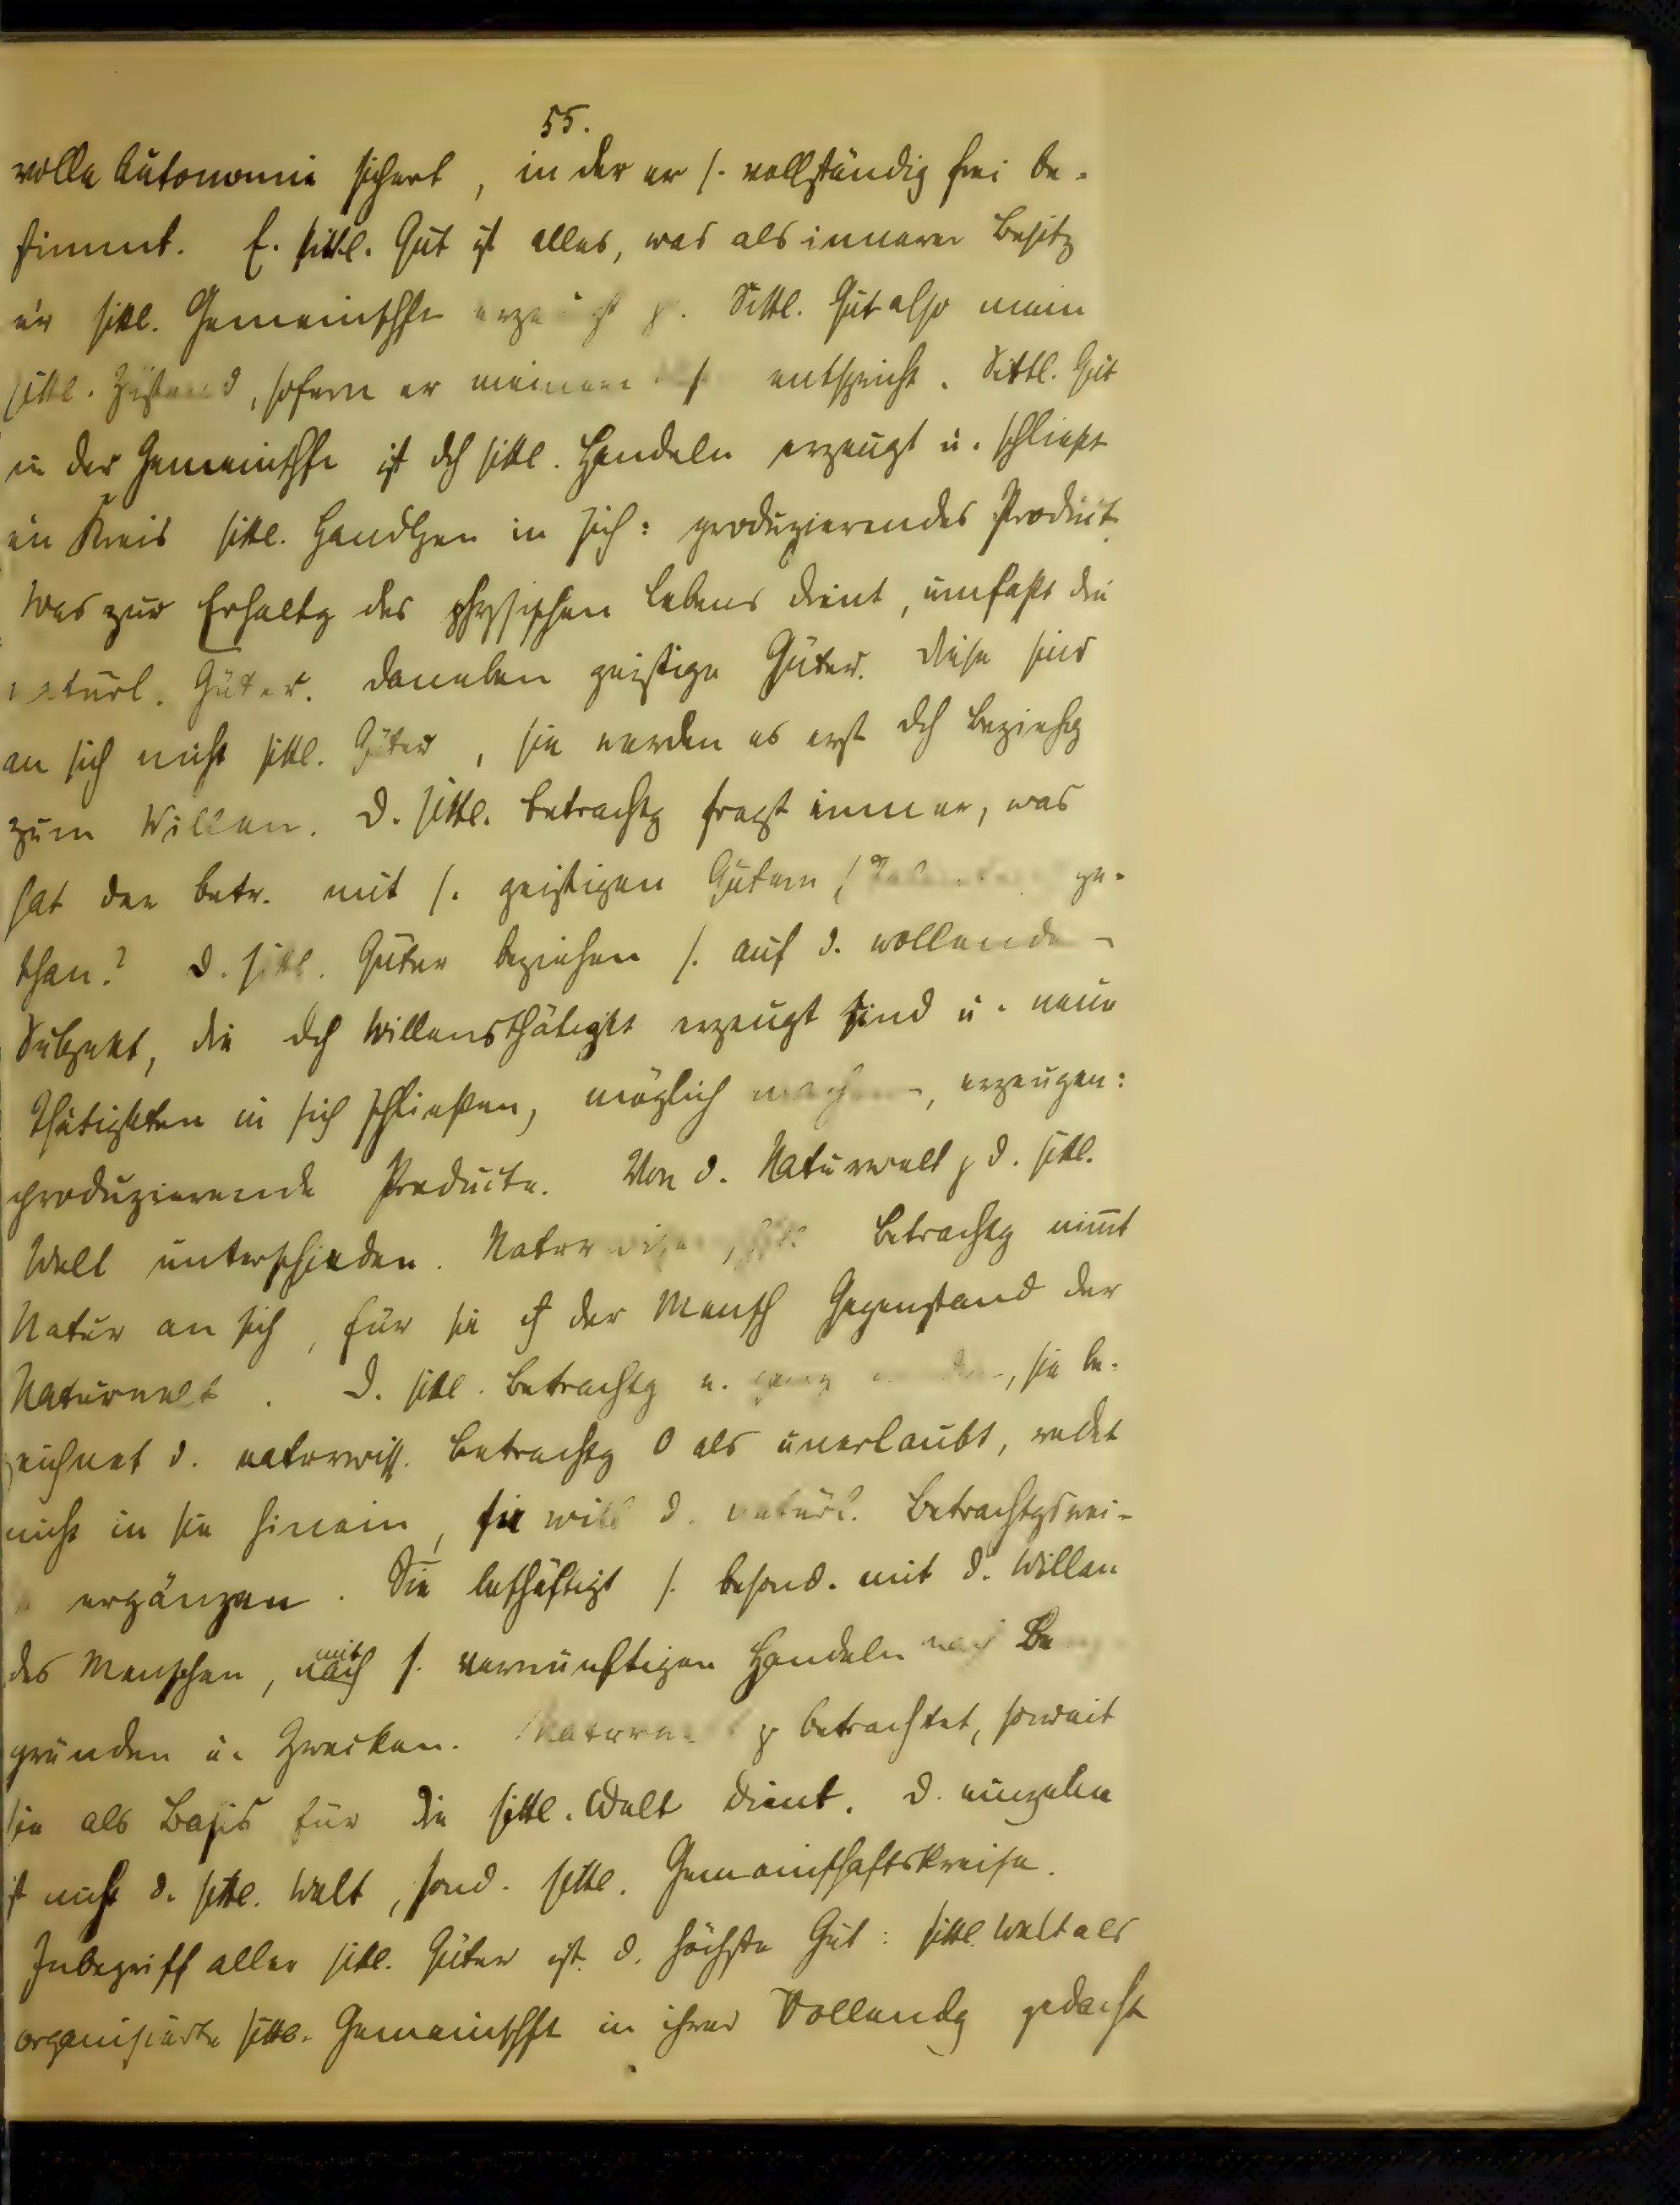 55.
volle Autonomie sichert, in der er s. vollständig frei be-
stimmt. E. sittl. Gut ist alles, was als innerer Besitz
er sittl. Gemeinschft erzeugt . Sittl. Gut also mein
sittl. Zustand, sofern er meinem entspricht. Sittl. Gut
in der Gemeinschft ist dch sittl. Handeln erzeugt u. schließt
ein Kreis sittl. Handlgen in sich: produzierendes Product.
Was zur Erhaltg des physischen Lebens dient, umfaßt die
natürl. Güter. Daneben geistige Güter. Diese sind
an sich nicht sittl. Güter, sie werden es erst dch Beziehg
zum Willen. D. sittl. Betrachtg fragt immer, was
hat der betr. mit s. geistigen Gütern ge-
than? D. sittl. Güter beziehen s. auf d. wollende
Subjekt, die dch Willensthätigkt erzeugt sind u. neue
Thätigkten in sich schließen, möglich machen, erzeugen:
produzierende Producte. Von d. Naturwelt d. sittl.
Welt unterschieden. Betrachtg nimt
Natur an sich, für sie ist der Mensch Gegenstand der
Naturwelt. D. sittl. Betrachtg , sie be-
zeichnet d. naturwiss. Betrachtg 0 als unerlaubt, redet
nicht in sie hinein, sie will d. natürl. Betrachtgswei-
ergänzen. Sie beschäftigt s. besond. mit d. Willen
des Menschen, mit s. vernünftigen Handeln nach Be
gründen u. Zwecken. betrachtet, soweit
sie als Basis für die sittl. Welt dient. D. einzelne
ist nicht d. sittl. Welt, sond. sittl. Gemeinschaftskreise.
Inbegriff aller sittl. Güter ist d. höchste Gut: sittl. Welt als
organisierte sittl. Gemeinschft in ihrer Vollendg gedacht